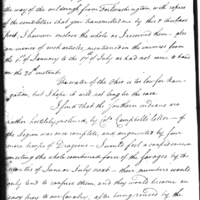 the way of the wilderness from Fort Washington with copies
of the contents that you transmitted me by this
I however enclose the whole as I received them - also
an invoice of such articles mentioned on the inverse from
the 1st of January to the 1st of July as had not come to hand
on the 20th instant.
The water of the Ohio is too low for Nav-
igation, but I hope it will not long be the case.
I find that the Southern Indians are
rather hostilely inclined, by Colo. Campbells letter - if
the Legion was once complete, and augmented by four
more troops of Dragoons - I would feel a confidence in
meeting the whole combined force of the savages by the
months of June or July next - their numbers would
only tend to confuse them and they would become an
easy prey to our Cavalry, after being roused by the